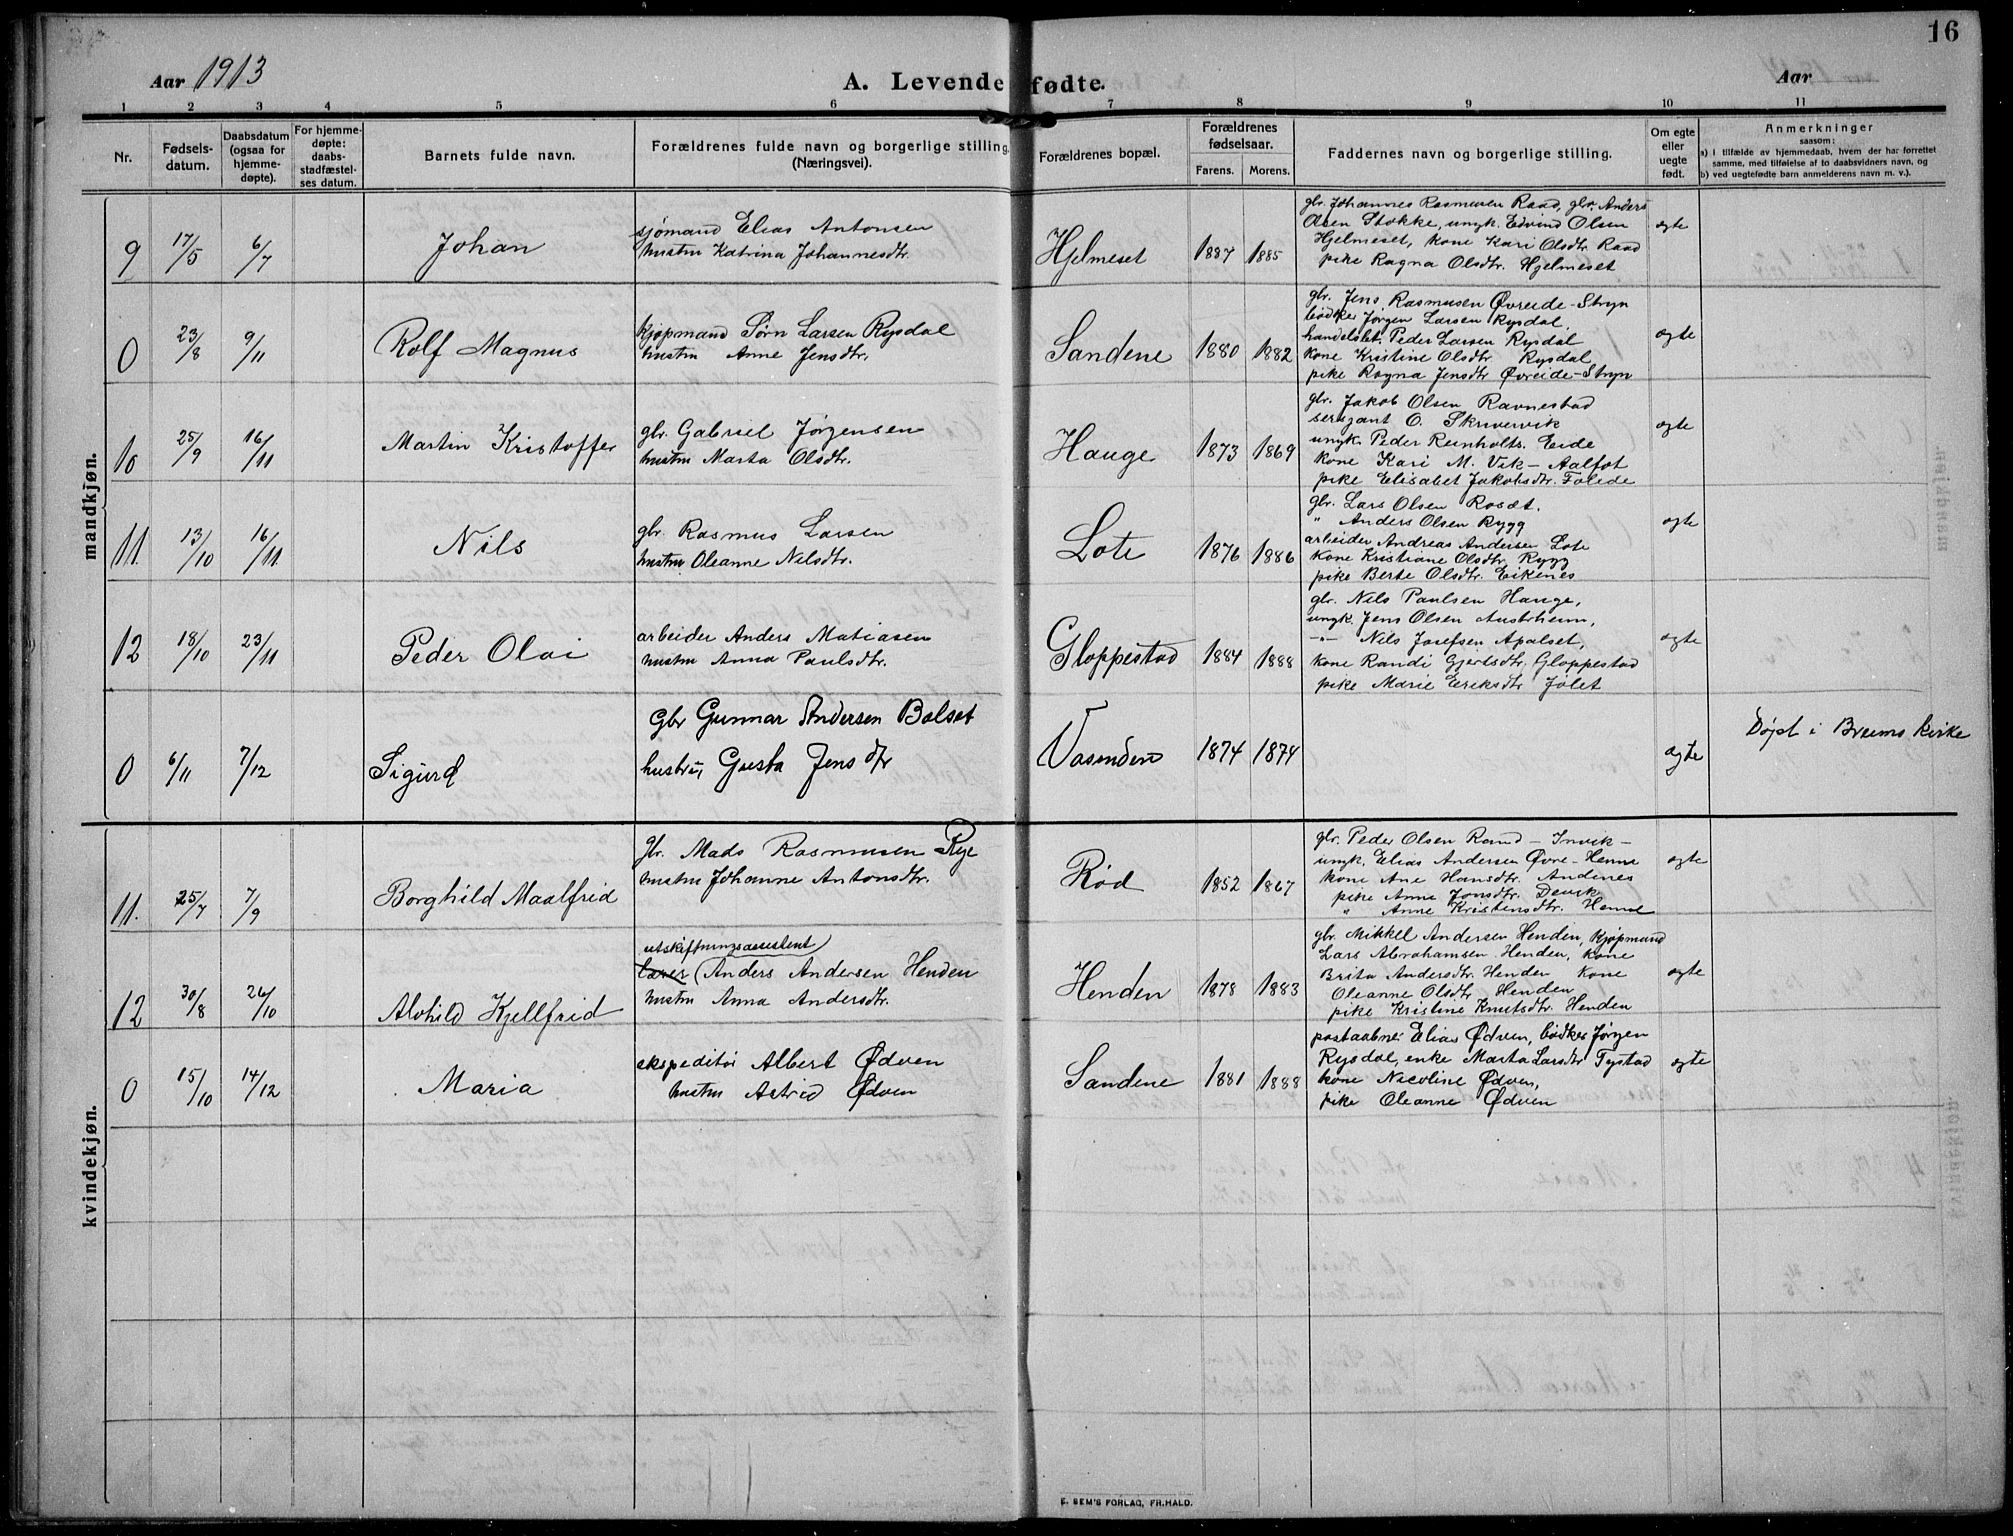 16
Aar 1913
A. Levende fødte.
Aar
1 2 3 4 5 6 7 8 9 10 11
Nr.
Fødsels-
datum.
Daabsdatum
(ogsaa for
hjemme-
døpte).
For hjemme-
døpte:
daabs-
stadfæstel-
ses datum.
Barnets fulde navn.
Forældrenes fulde navn og borgerlige stilling
(Næringsvei).
Forældrenes bopæl.
Forældrenes
fødselsaar.
Farens. Morens.
Faddernes navn og borgerlige stilling.
Om egte
eller
uegte
født.
Anmerkninger
saasom:
a) i tilfælde av hjemmedaab, hvem der har forrettet
samme, med tilføielse af to daabsvidners navn, og
b) ved uegtefødte barn anmelderens navn m. v.).
mandkjøn.
9 17/5 6/7 Johan
sjømand Elias Antonsen
hustru Katrina Johannesdtr.
Hjelmeset 1887 1885
glr. Johannes Rasmusen Raad, glr. Anders
Olsen Stokke, ungk. Edvind Olsen
Hjelmeset, kone Kari Olsdtr. Raad
pike Ragna Olsdtr. Hjelmeset
egte
0 23/8 9/11 Rolf Magnus
kjøpmand Sørn Larsen Rysdal
hustru Anne Jensdtr.
Sandene 1880 1882
gbr. Jens Rasmusen Øvreide-Stryn
bødker Jørgen Larsen Rysdal,
handelsbet. Peder Larsen Rysdal
kone Kristine Olsdtr Rysdal,
pike Ragna Jensdtr Øvreide-Stryn
egte
10 25/9 16/11 Martin Kristoffer
gbr. Gabriel Jørgensen
hustru Marta Olsdtr.
Hauge 1873 1869
gbr. Jakob Olsen Ravnestad
sersjant O. Skrivervik
ungk. Peder Reinholts. Eide
kone Kari M. Vik - Aalfot
pike Elisabet Jakobsdtr.
egte
11. 13/10 16/11. Nils
gbr. Rasmus Larsen
hustru Oleanne Nilsdtr.
Lote 1876 1886
gbr. Lars Olsen Rosæt.
" Anders Olsen Rygg
arbeider Andreas Andersen Lote
kone Kristiane Olsdtr. Rygg
pike Berte Olsdtr. Eikenes
egte
12 18/10 23/11 Peder Olai
arbeider Anders Matiasen
hustru Anna Paulsdtr.
Gloppestad 1884 1888
gbr. Nils Paulsen Hauge,
ungk. Jens Olsen Austrheim,
-"- Nils Josefsen Apalset,
kone Randi Gjertsdtr. Gloppestad
pike Marie Eriksdtr
egte
0 6/11 7/12 Sigurd
Gbr Gunnar Andersen Bolset
hustru, Gusta Jens dtr
Vasenden 1874 1874
egte
Døpt i Breims kirke
kvindekjøn.
11. 25/7 7/9 Borghild Maalfrid
gbr. Mads Rasmusen Rye
hustru Johanne Antonsdtr.
Rød 1852 1867
gbr. Peder Olsen Rand - Invik -
ungk. Elias Andersen Øvre-Henne
kone Ane Hansdtr. Andenes
pike Anne Jonsdtr. Devik
" Anne Kristensdtr. Henne
egte
12 30/8 26/10 Alvhild Kjellfrid
utskiftningsassistent
lærer (Anders Andersen Henden
hustru Anna Andersdtr.
Henden 1878 1883
gbr. Mikkel Andersen Henden, kjøpmand
Lars Abrahamsen Henden, kone
Brita Andersdtr. Henden kone
Oleanne Olsdtr Henden
pike Kristine Knutsdtr. Henden
egte
0 15/10 14/12 Maria
ekspeditør Albert Ødven
hustru Astrid Ødven
Sandene 1881 1888
postaabner Elias Ødven, bødker Jørgen
Rysdal, enke Marta Larsdtr Tystad
kone Nicoline Ødven,
pike Oleanne Ødven
egte
E. SEM'S FORLAG, FR.HALD.